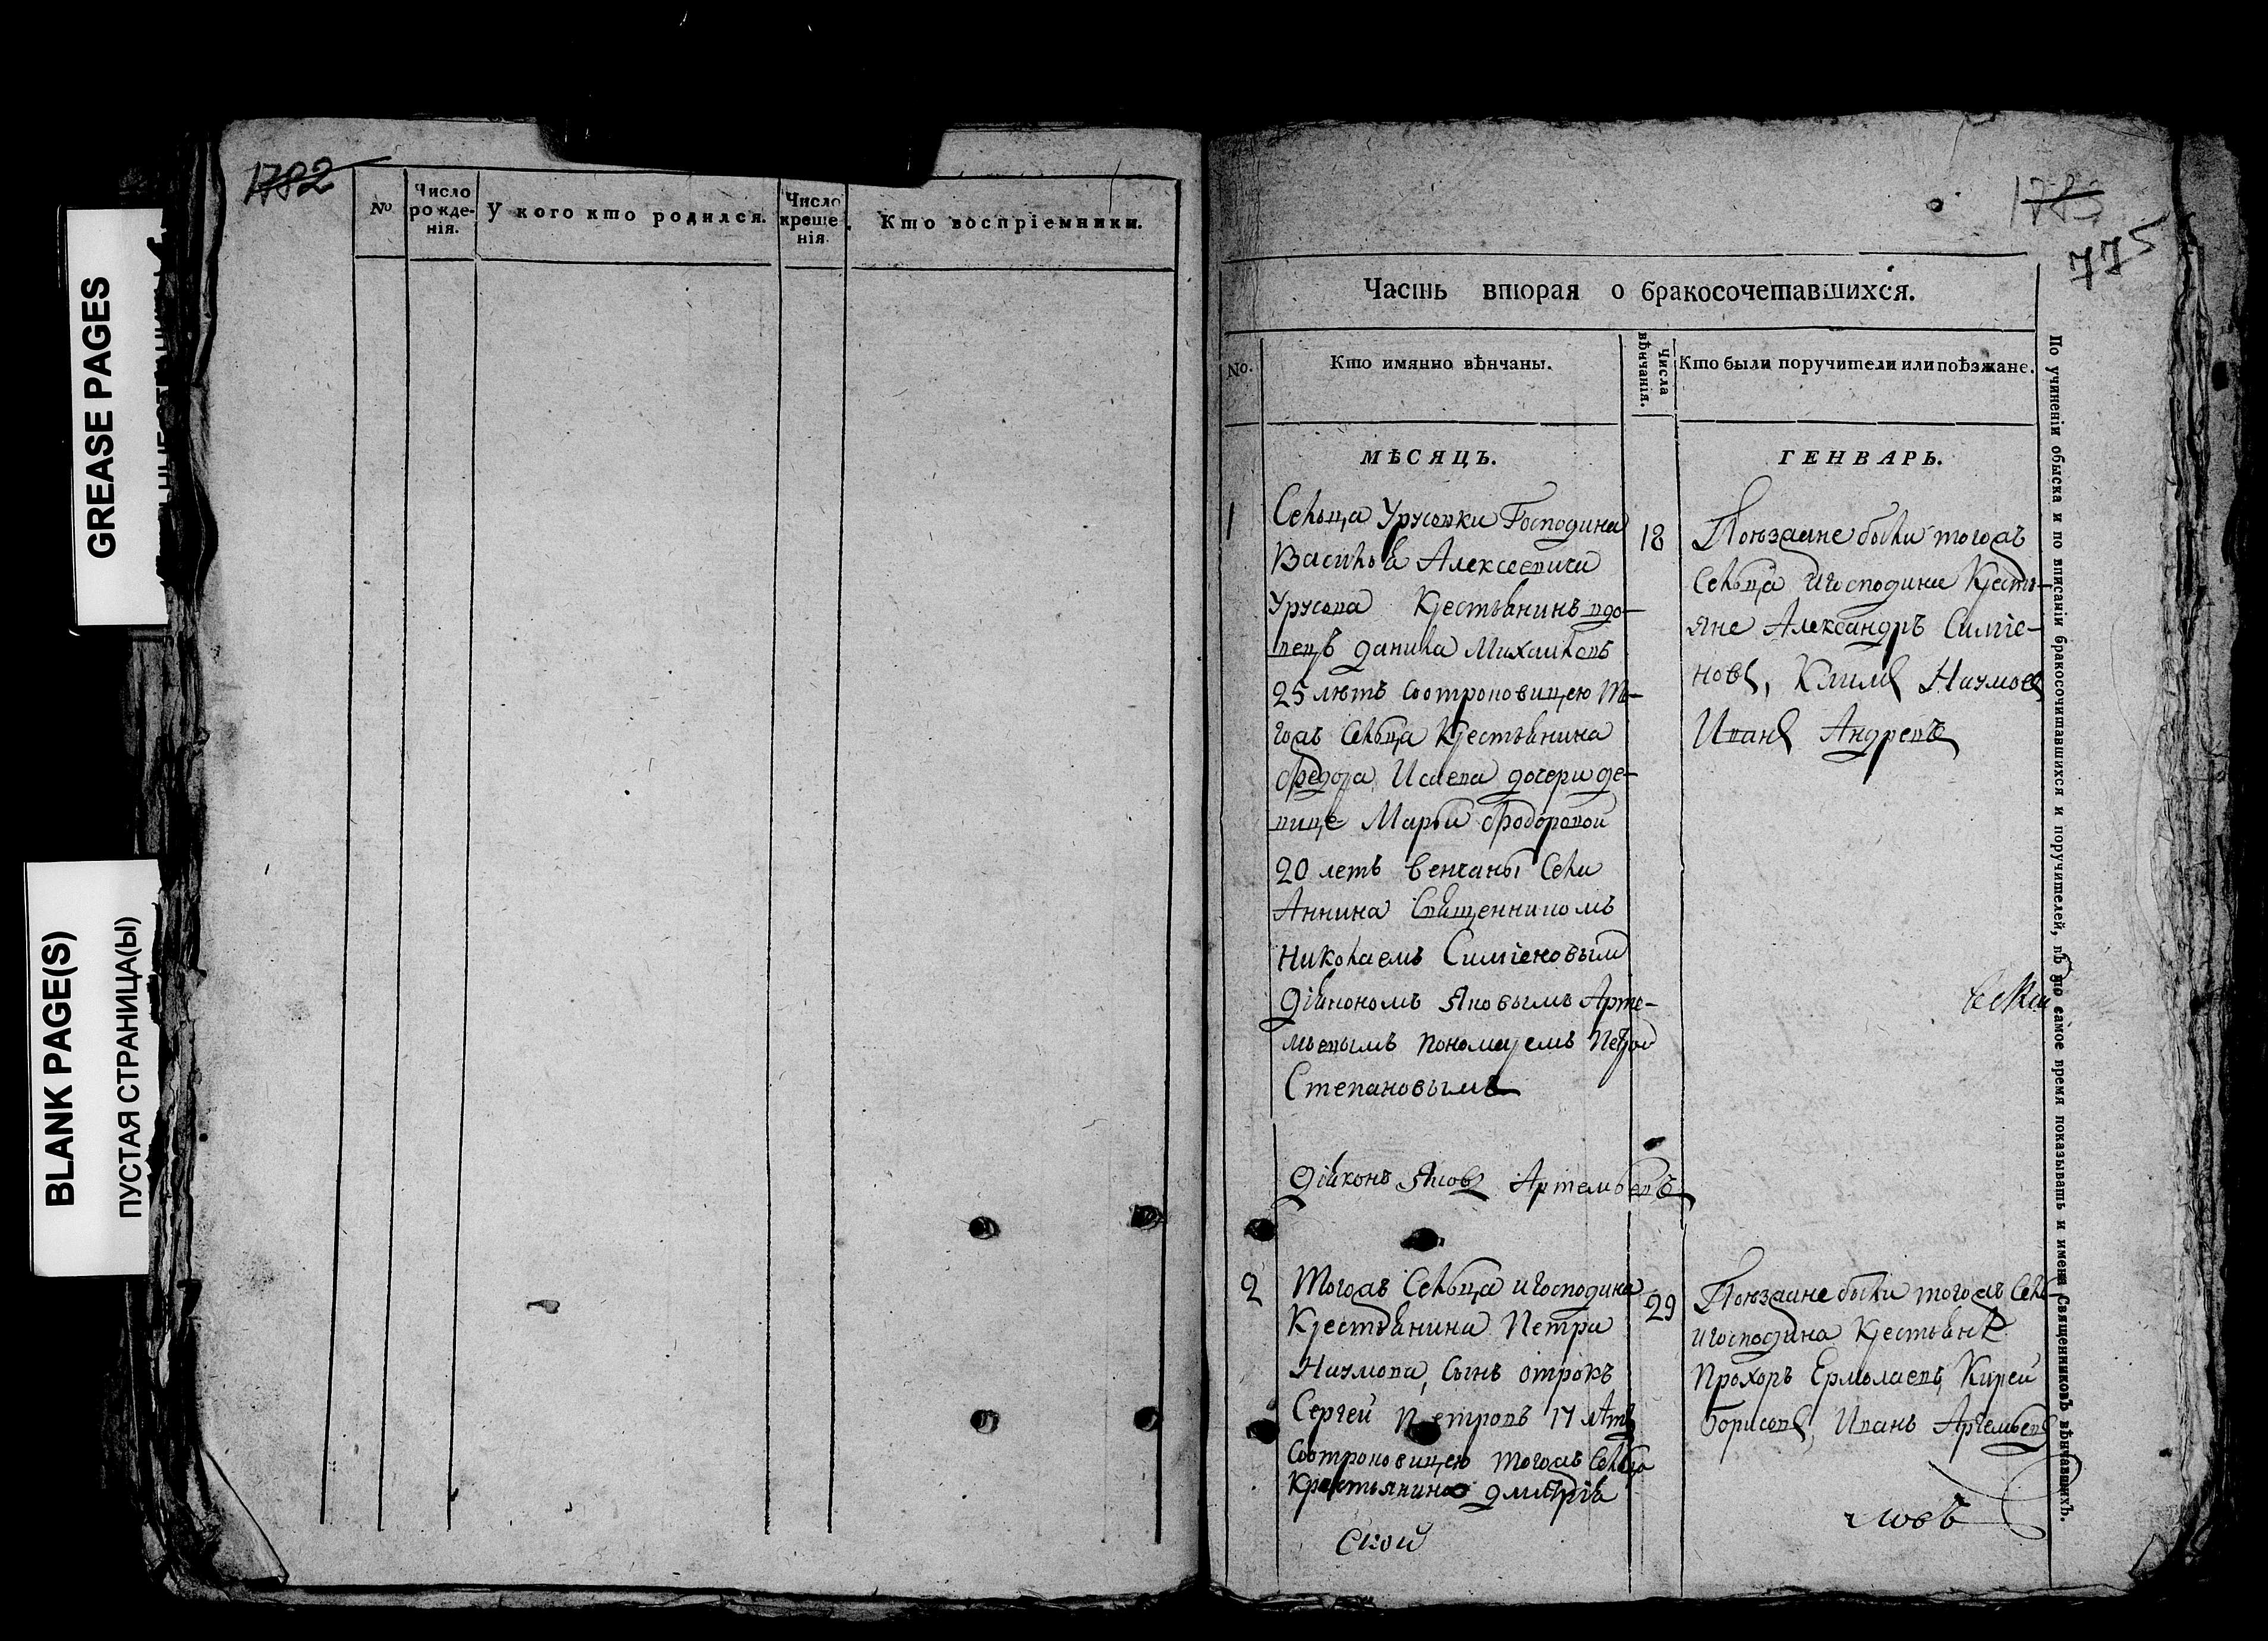 GREASE PAGES
BLANK PAGE(S)
ПУСТАЯ СТРАНИЦА(Ы)
1782
No.
Число рожде-нія.
У кого кто родился.
Число креще нія.
Кто воспріемники.
1783
775
Часть вторая о бракосочетавшихся.
No.
Кто имянно вѣнчаны.
Числа вѣнчанія.
Кто были поручители или поѣзжане.
МѢСЯЦЪ.
ГЕНВАРЬ.
1
Сельца Урусовки Господина
Василья Алексеевича
Урусова Крестьянинъ вдо-
вецъ данила Михаиловъ
25 лѣтъ соотроковицею то-
гожъ сельца Крестьянина
Федора Исаева дочери де-
вице Марьи Фодоровой
20 летъ венчаны Села
Аннина Священникомъ
Николаемъ Симіеновым
Діякономъ Яковымъ Арте-
мьевымъ пономаремъ Петром
Степановымъ
Діяконъ Яковъ Артемьевъ
18
Поюзжане были тогожъ
сельца игосподина Кресть-
яне Александръ Симіе-
новъ, Климъ Наумовъ
Иванъ Андревъ
2
Тогожъ Сельца игосподина
Крестьянина Петра
Наумова, сынъ отрокъ
Сергей Петровъ 17 лѣтъ
соотроковицею тогожъ сельца
Крестьянина дмитрія
ской
29
Поюзжане были тогожъ сель
игосподина Крестьяне
Прохоръ Ермолаевъ, Кирей
борисовъ, Иванъ Артемьевъ
По учиненіи обыска и по вписаніи бракосочитавшихся и поручителей, въ то самое время показывать и имена Священниковъ вѣнчавшихъ.